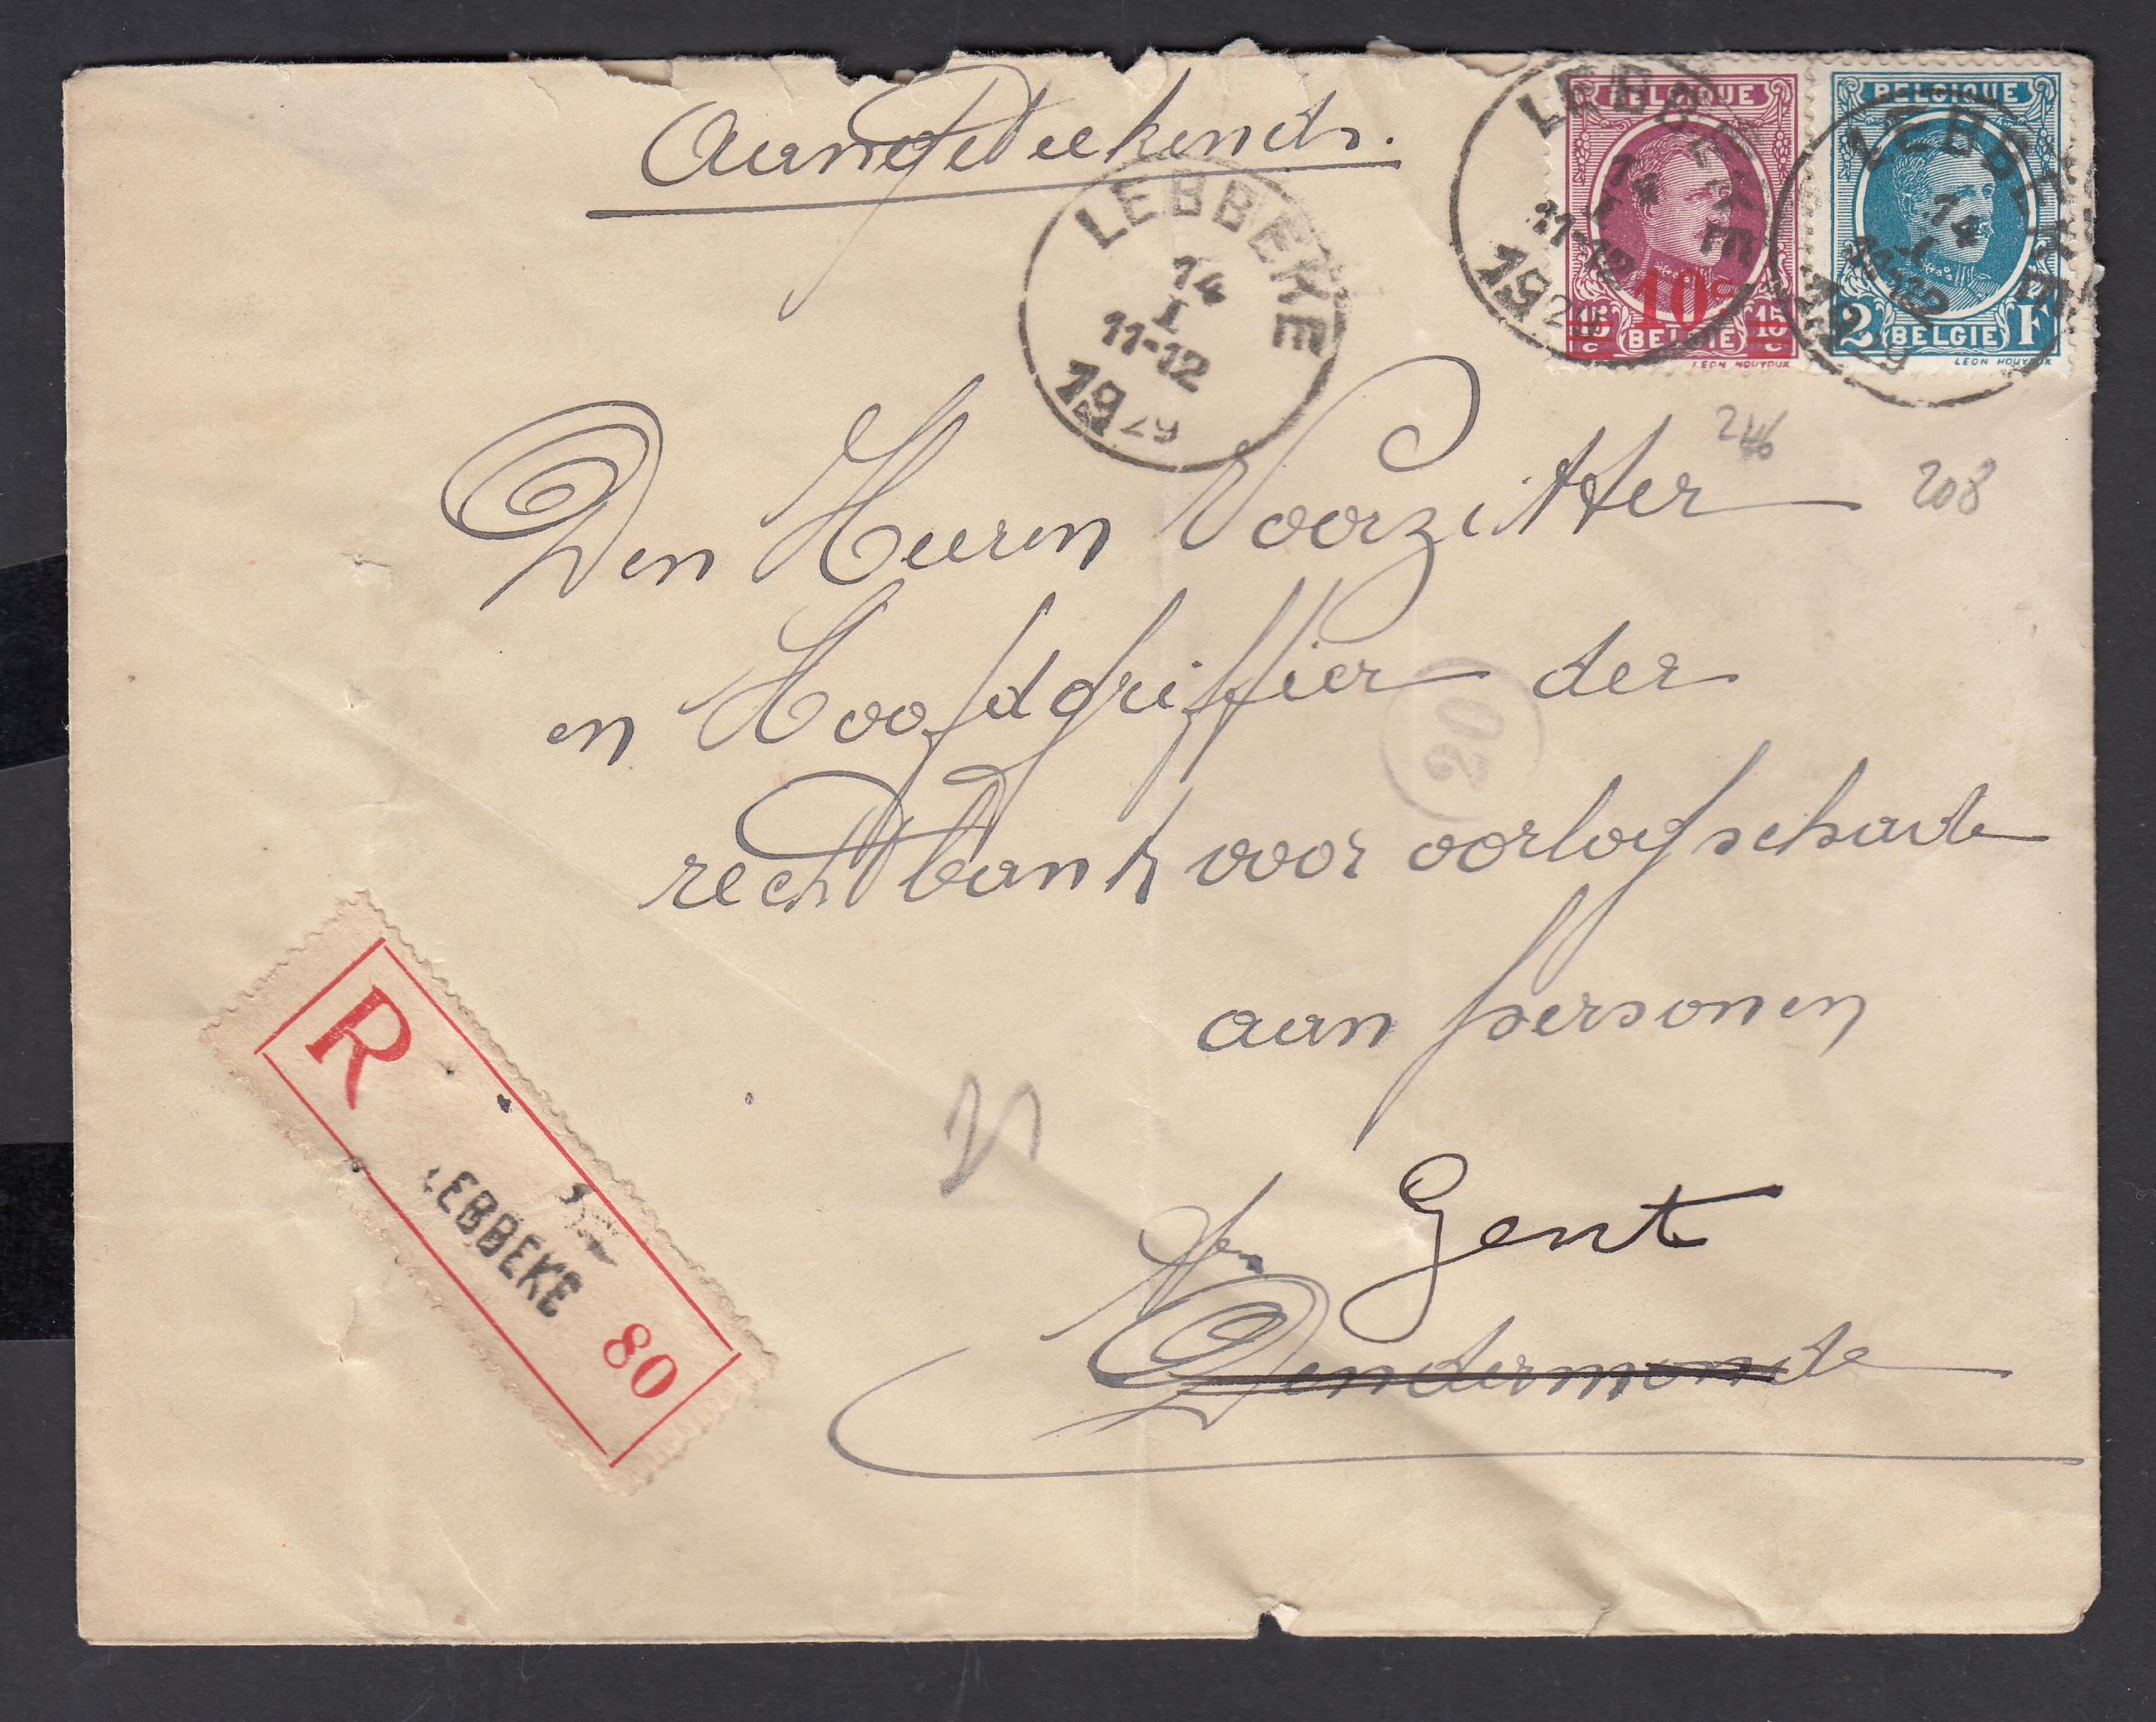 Aangeteekend.
LEBBEKE
14
I
11-12
1929
LEBBEKE
14
I
11-12
1929
LEBBEKE
14
I
11-12
BELGIQUE
10c
15 BELGIE 15
c c
LEON HOUYOUX
BELGIQUE
2 BELGIE F
LEON HOUYOUX
246
208
Den Heeren Voorzitter
en Hoofdgriffier der
20
rechtbank voor oorlogschade
aan personen
Gent
Dendermonde
R
LEBBEKE
80